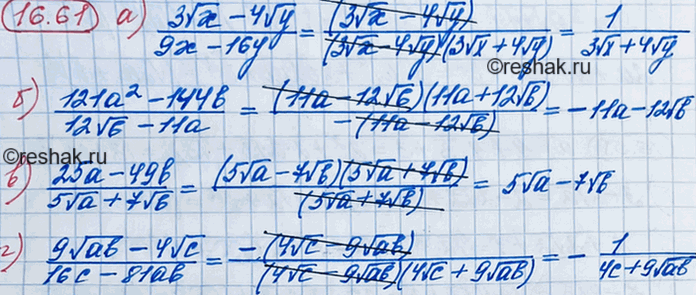 16.61 а) (3√x - 4√y)/(9x - 16y) = (3√x - 4√y)/((3√x - 4√y)(3√x + 4√y)) = 1/(3√x + 4√y)
©reshak.ru
б) (121a² - 144b)/(12√b - 11a) = ((11a - 12√b)(11a + 12√b))/(-(11a - 12√b)) = -11a - 12√b
©reshak.ru
в) (25a - 49b)/(5√a + 7√b) = ((5√a - 7√b)(5√a + 7√b))/((5√a + 7√b)) = 5√a - 7√b
г) (9√ab - 4√c)/(16c - 81ab) = (-(4√c - 9√ab))/((4√c - 9√ab)(4√c + 9√ab)) = - 1/(4c + 9√ab)
©reshak.ru